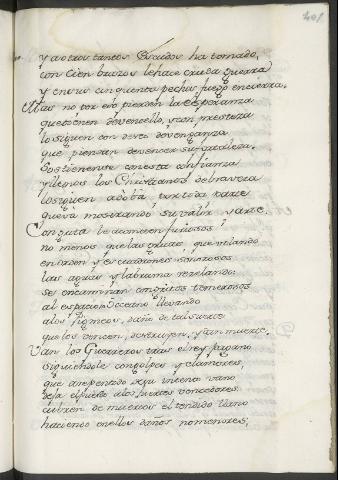 401
y a otros tantos Escudos ha tomado,
con Cien brazos le hace cruda guerra
y en sus cinquenta pechos fuego encierra.
Mas no por eso pierden la esperanza
que tienen de vencello, y con presteza
lo siguen con deseo de venganza
que piensan de vencer su fortaleza.
Sostienense con esta confianza
y llenos los Christianos de braveza
lo siguen a doba por toda parte
que va mostrando su valor y arte.
Con grita le acometen furiosos
no menos que las gruas que volando
en orden y escuadrones sonorosos
las aguas y la bruma revelando:
se encaminan con gritos temerosos
al espacioso Oceano llevando
a los Pigmeos, daño de tal suerte
que los vencen, destruyen, y dan muerte.
Van los Guerreros tras el rey pagano
siguiendole con golpes y clamores,
que arrepentido de su intento vano
deja el puesto a los fuertes vencedores
cubren de muertos el tendido llano
haciendo en ellos daños no menores,